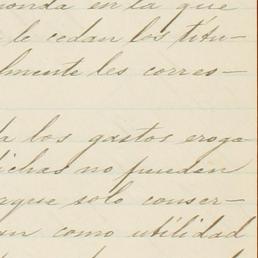 onda en la que
le cedan los títu-
lmente les corres-
a los gastos eroga
dichas no pueden
rque solo conser-
an como utilidad